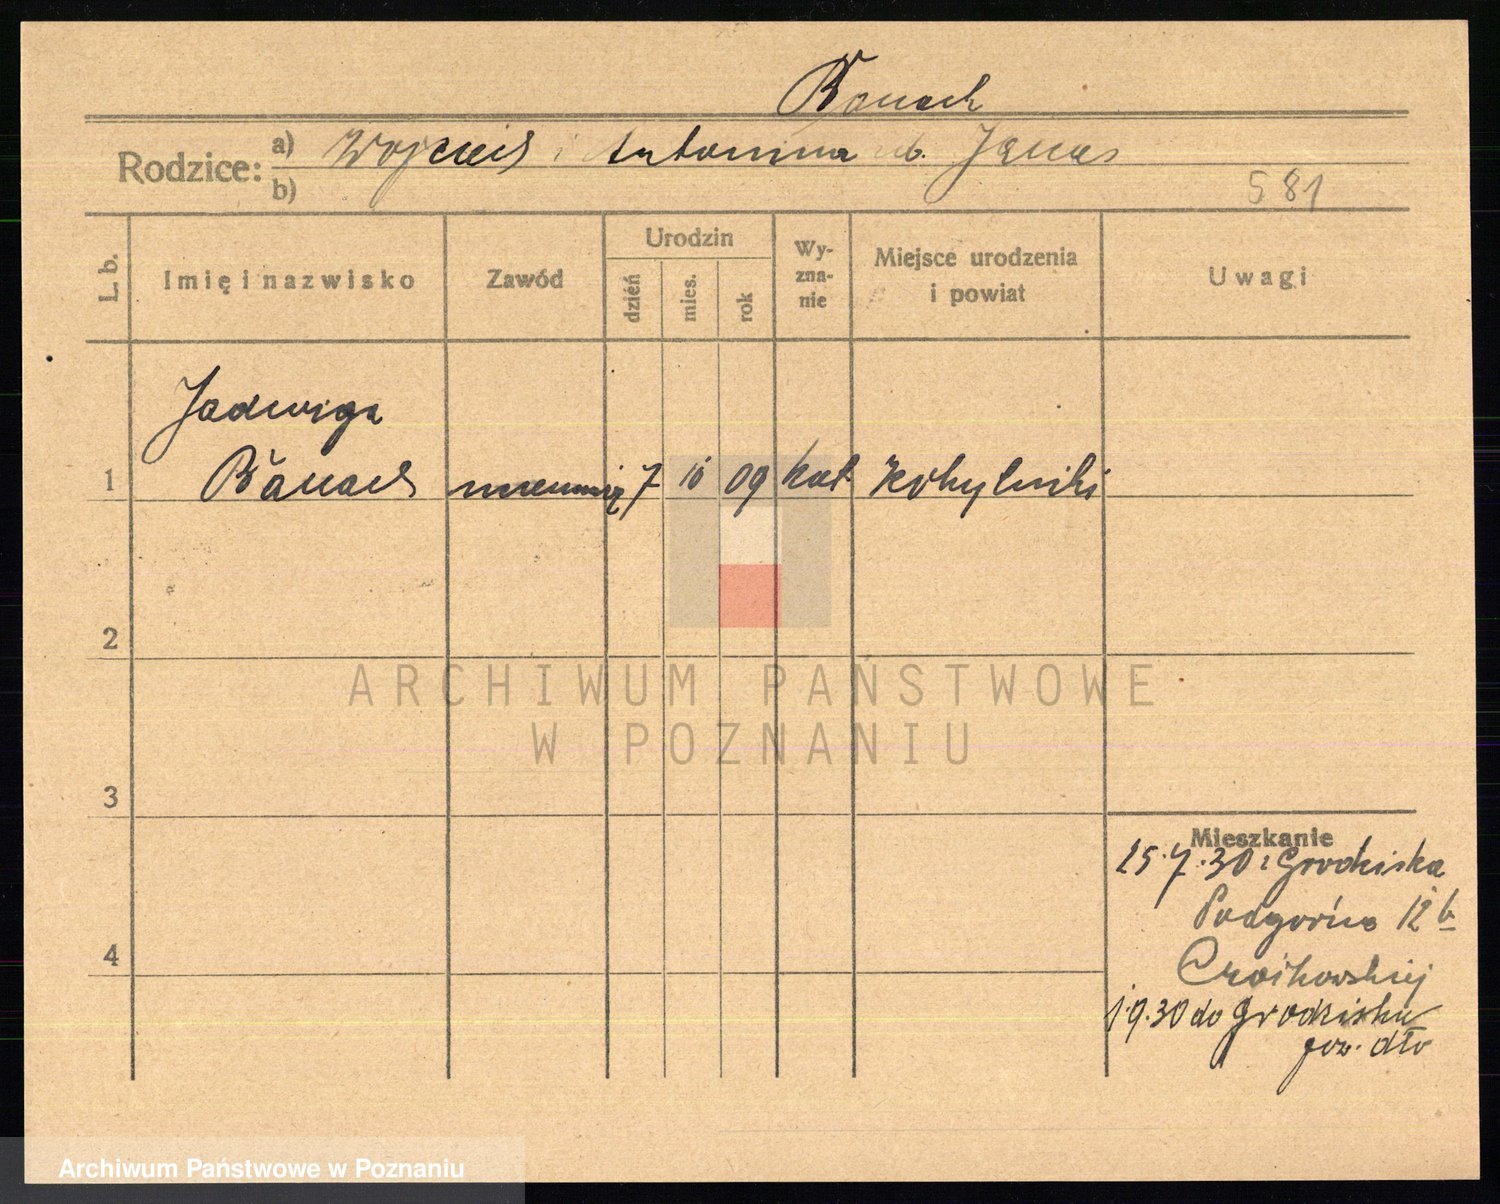 Banach
Rodzice: a) Wojciech i Antonina ub. Janas
b)
581
L. b. Imię i nazwisko Zawód Urodzin dzień mies. rok Wy-zna-nie Miejsce urodzenia i powiat Uwagi
Jadwiga
1 Banach 7 10 09 kat. Kobylniki
2
ARCHIWUM PAŃSTWOWE
W POZNANIU
3
Mieszkanie
25.7.30 z Grodziska
Podgórna 12b
4
1.9.30 do Grodziska
pow. dto
Archiwum Państwowe w Poznaniu